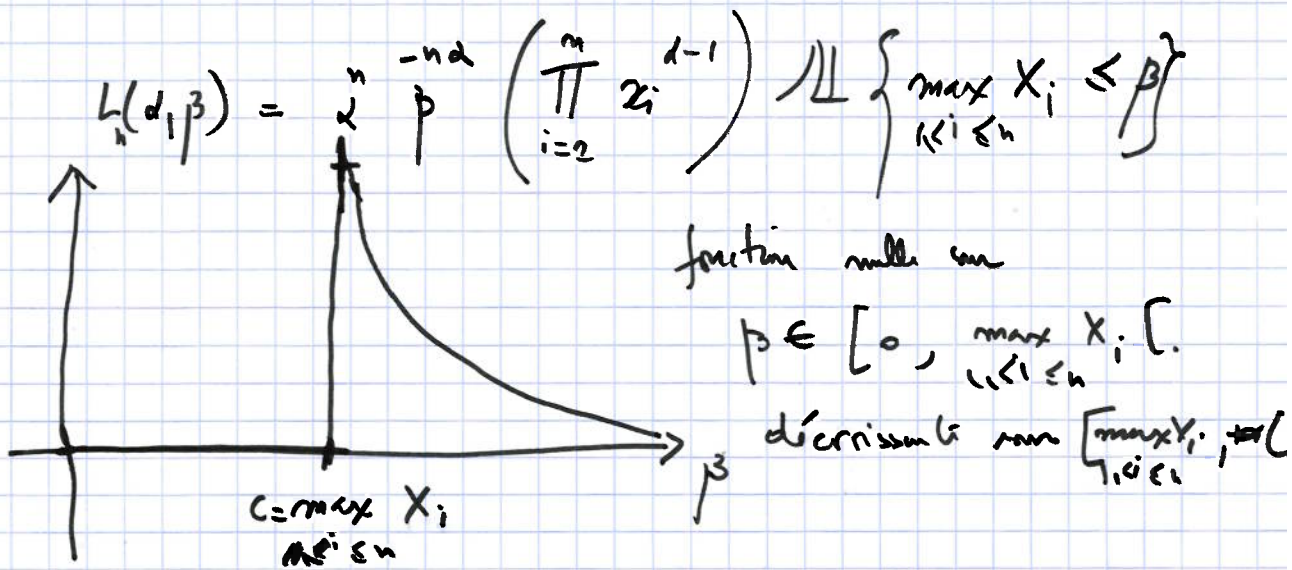 Lₙ(α, β) = αⁿ β^{-nα} ( ∏_{i=2}^{n} xᵢ^{α-1} ) 𝟙{ max_{1≤i≤n} Xᵢ ≤ β }
fonction nulle sur
β ∈ [0, max_{1≤i≤n} Xᵢ [.
décroissante sur [max_{1≤i≤n} Xᵢ, +∞[
β
c = max_{1≤i≤n} Xᵢ